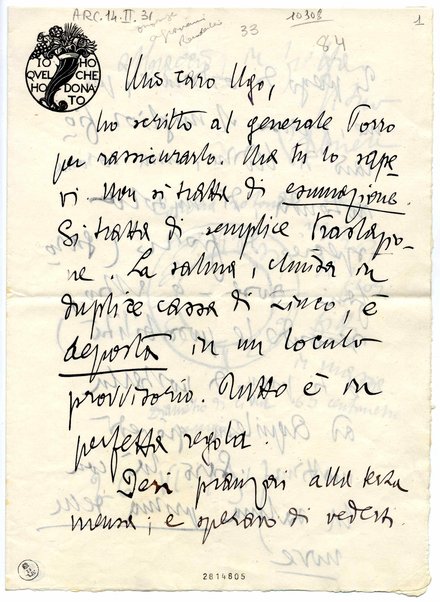 ARC. 14. II. 31
10308
1
33
84
IO HO
QVEL CHE
HO DONA
TO
Mio caro Ugo,
ho scritto al generale Porro
per rassicurarlo. Ma tu lo sape
vi. Non si tratta di esumazione.
Si tratta di semplice traslazio-
ne. La salma, chiusa in
duplice cassa di zinco, è
deposta in un loculo
provvisorio. Tutto è in
perfetta regola.
Ieri pranzai alla terza
mensa; e speravo di vederti.
2814805